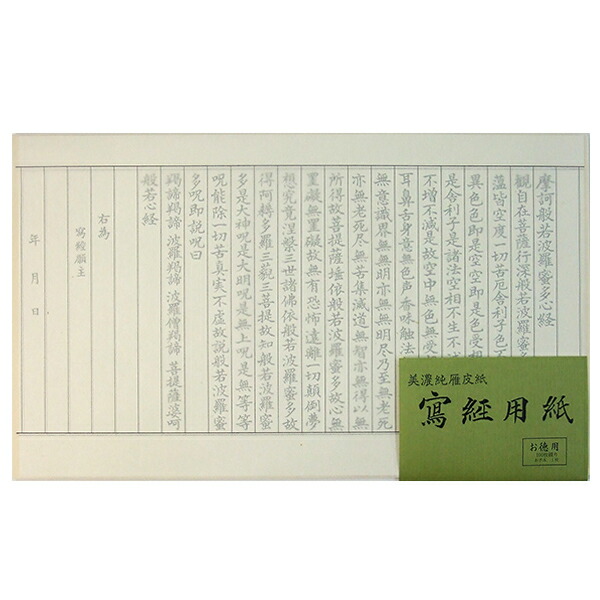 摩訶般若波羅蜜多心経
觀自在菩薩行深般若波羅蜜多
蘊皆空度一切苦厄舎利子色不
異色色即是空空即是色受想
是舎利子是諸法空相不生不
不増不減是故空中無色無受
耳鼻舌身意無色声香味触法
無意識界無無明亦無無明尽乃至無老死
亦無老死尽無苦集滅道無智亦無得以無
所得故菩提薩埵依般若波羅蜜多故心無
罣礙無罣礙故無有恐怖遠離一切顛倒夢
想究竟涅槃三世諸佛依般若波羅蜜多故
得阿耨多羅三藐三菩提故知般若波羅蜜
多是大神呪是大明呪是無上呪是無等等
呪能除一切苦真実不虚故説般若波羅蜜
多呪即説呪曰
羯諦羯諦 波羅羯諦 波羅僧羯諦 菩提薩婆呵
般若心経
右為
寫経願主
年 月 日
美濃純雁皮紙
寫経用紙
お徳用
100枚綴り